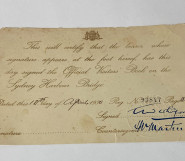 This will certify that the bearer whose
signature appears at the foot hereof has this
day signed the Official Visitors' Book on the
Sydney Harbour Bridge
Dated this 18th day of April 193
Signed
Countersigned Martin